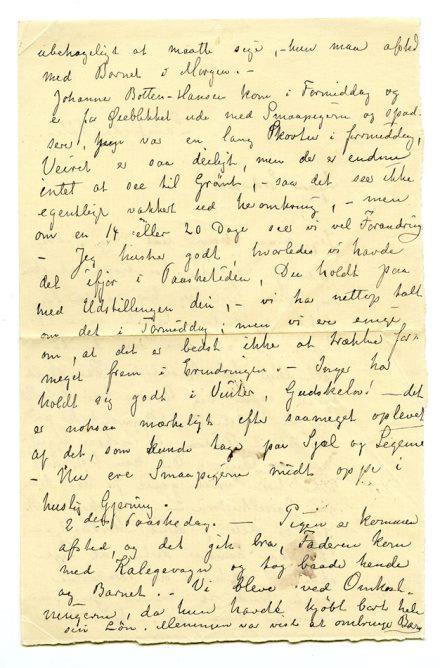 ubehageligt at maatte sige, - hun maa afsted
med Barnet i Morgen. -
Johanne Botten-Hansen kom i Formiddag og
er for Øieblikket ude med Smaapigerne og spad-
sere, jeg var en lang Skovtur i formiddag,
Veiret er saa deiligt, men der er endnu
intet at see til Grønt, - saa det seer ikke
egentligt vakkert ud heromkring, - men
om en 14 eller 20 Dage seer vi vel Forandring
- Jeg husker godt, hvorledes vi havde
det ifjor i Paasketiden, Du holdt paa
med Udstillingen din, - vi har nettop talt
om det i Formiddag; men vi ere enige
om, at det er bedst ikke at trække for
meget frem i Erindringen. - Inger har
holdt sig godt i Vinter, Gudskelov! - det
er noksaa mærkeligt efter saameget oplevet
af det, som kunde tage paa Sjæl og Legeme
- Nu ere Smaapigerne midt oppe i
huslig Gjerning.
2den Paaskedag. - Pigen er kommen
afsted, og det gik bra, Faderen kom
med Kalesevogn og tog baade hende
og Barnet. - Vi bleve ved Omkost-
ningerne, da hun havde kjøbt bort hele
sin Løn. Meningen var vist at ombringe Barn